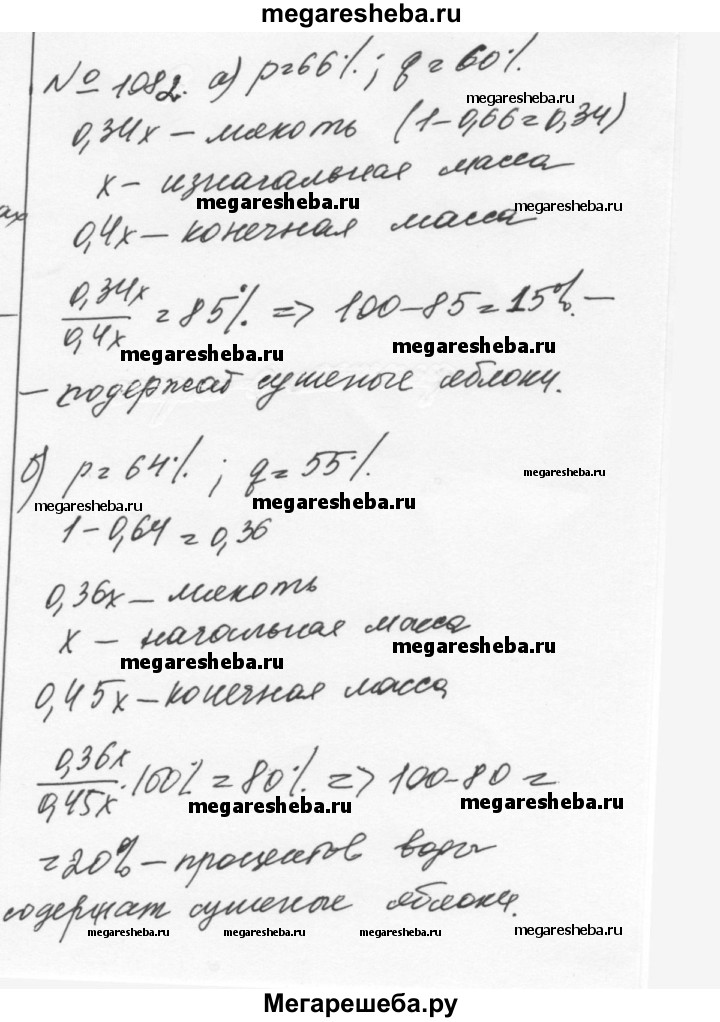 megaresheba.ru
№ 1082. а) p = 66%; q = 60%.
megaresheba.ru
0,34x – мякоть (1-0,66=0,34)
x – изначальная масса
megaresheba.ru megaresheba.ru
0,4x – конечная масса
0,34x/0,4x = 85% => 100-85=15%. –
megaresheba.ru megaresheba.ru
– содержат сушеные яблоки.
б) p = 64%; q = 55%.
megaresheba.ru megaresheba.ru megaresheba.ru
1-0,64 = 0,36
0,36x – мякоть
x – начальная масса
megaresheba.ru megaresheba.ru
0,45x – конечная масса
0,36x/0,45x · 100% = 80% => 100-80 =
megaresheba.ru megaresheba.ru
= 20% – процентов воды
содержат сушеные яблоки.
megaresheba.ru megaresheba.ru megaresheba.ru megaresheba.ru
Мегарешеба.ру